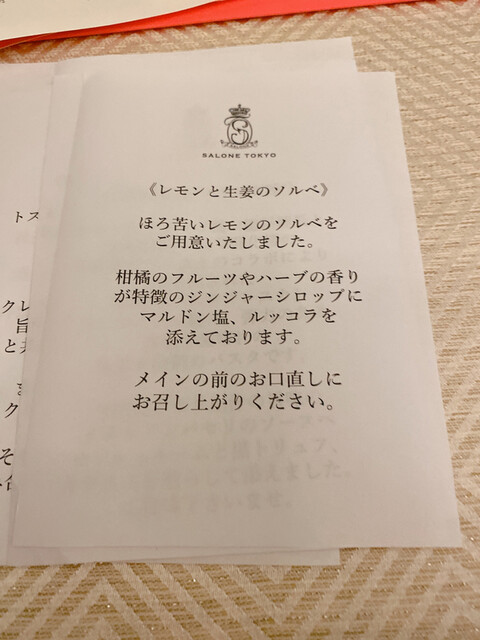 SALONE TOKYO
《レモンと生姜のソルベ》
ほろ苦いレモンのソルベを
ご用意いたしました。
柑橘のフルーツやハーブの香り
が特徴のジンジャーシロップに
マルドン塩、ルッコラを
添えております。
メインの前のお口直しに
お召し上がりください。
トス
クレ
旨
と
ク
そ